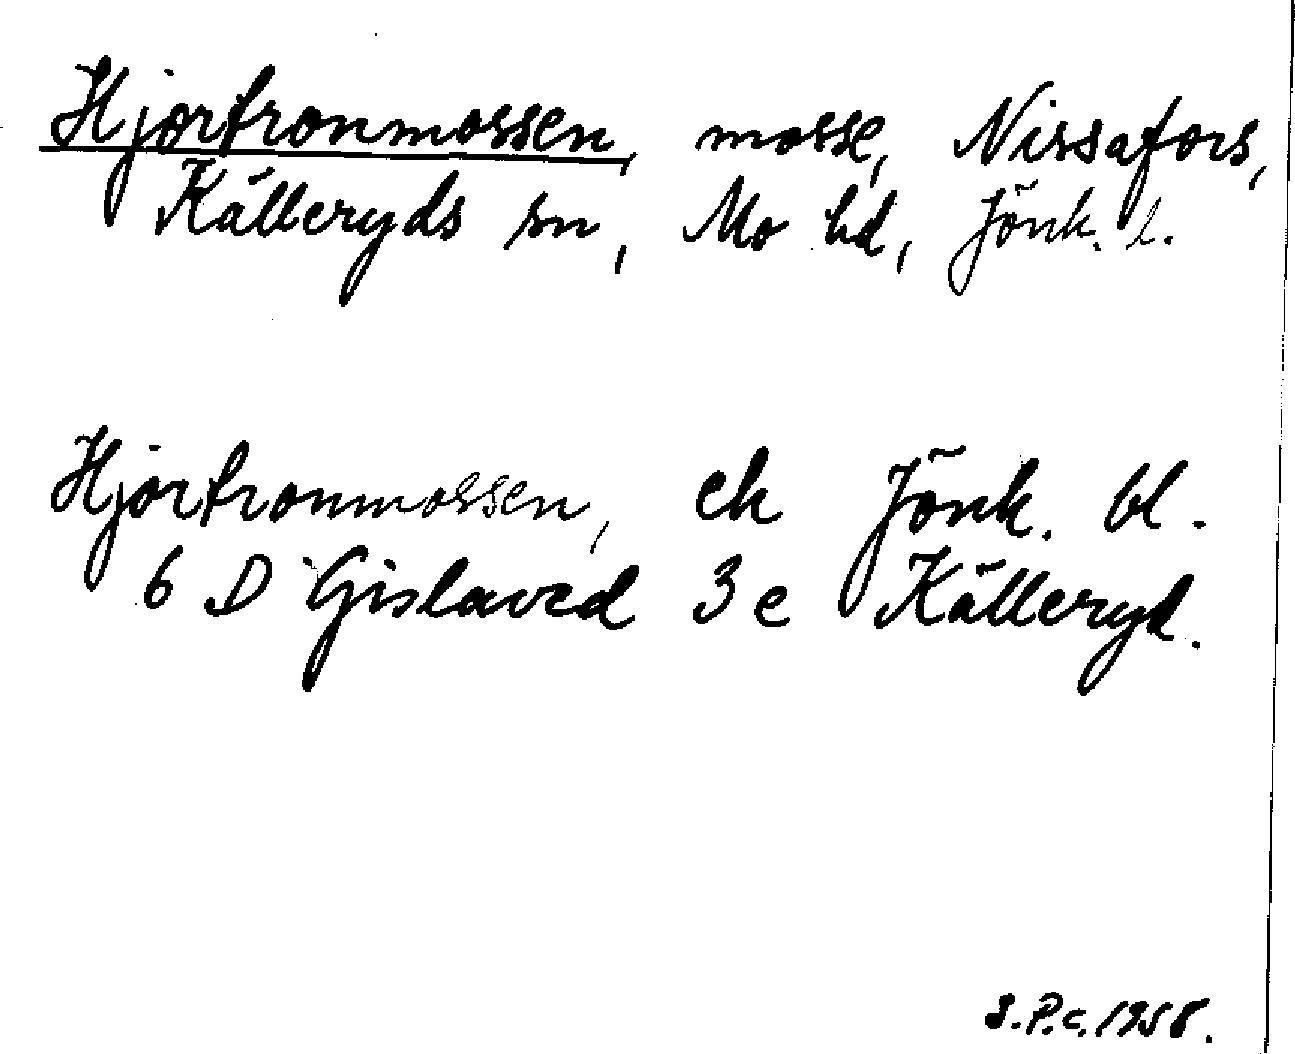 Hjortronmossen, mosse, Nissafors,
Källeryds sn, Mo hd, Jönk. l.
Hjortronmossen, ek Jönk. bl.
6 D Gislaved 3e Källeryd.
S.P.C. 1958.